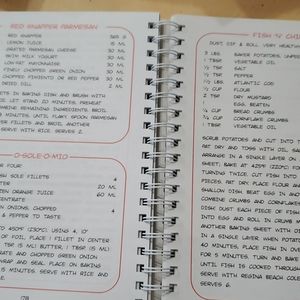 RED SNAPPER PARMESAN
RED SNAPPER 365 G
LEMON JUICE 15 ML
GRATED PARMESAN CHEESE 30 ML
SKIM MILK YOGURT 30 ML
LOW-FAT MAYONNAISE 30 ML
FINELY CHOPPED GREEN ONION 30 ML
CHOPPED PIMIENTO OR RED PEPPER 30 ML
DRIED DILL 2 ML
ETS IN BAKING DISH AND BRUSH WITH
CE. LET STAND 20 MINUTES. PREHEAT
OMBINE REMAINING INGREDIENTS. BROIL
MINUTES, UNTIL FLAKY. SPOON PARMESAN
ER FILLETS AND BROIL ANOTHER
SERVE WITH RICE. SERVES 2.
O-SOLE-O-MIO
FOUR:
SH SOLE FILLETS 4
TER 20 ML
EN ORANGE JUICE 60 ML
ENTRATE
N ONIONS, CHOPPED 4
& PEPPER TO TASTE
TO 450°F (230°C). USING 4, 10"
OF FOIL, PLACE 1 FILLET IN CENTER
1 TSP. (5 ML) BUTTER, 1 TBSP. (15 ML)
RATE AND CHOPPED GREEN ONION
WRAP AND SEAL. PLACE ON BAKING
MINUTES. SERVE WITH RICE AND
178
FISH 'N' CHI
DUST, DIP & ROLL - VERY HEALTH
3 LBS. BAKER POTATOES, UNPEE
1 TBSP VEGETABLE OIL
½ TSP SALT
½ TSP PEPPER
1½ LBS. ATLANTIC COD
½ CUP FLOUR
2 TSP DRY MUSTARD
EGG, BEATEN
CUP BREAD CRUMBS
CUP CORNFLAKE CRUMBS
1 TBSP VEGETABLE OIL
SCRUB POTATOES AND CUT INTO
DRY AND TOSS WITH OIL, SA
ARRANGE IN A SINGLE LAYER ON
SHEET; BAKE AT 425°F (220°C) FOR
TURNING TWICE. CUT FISH INTO
PIECES. PAT DRY. PLACE FLOUR AND
SHALLOW DISH. BEAT EGG IN AN
COMBINE CRUMBS AND CORNFLAKE
DISH. DUST EACH PIECE OF FISH
INTO EGG AND ROLL IN CRUMB M
ANOTHER BAKING SHEET WITH O
IN A SINGLE LAYER. WHEN POTATO
40 MINUTES, PLACE FISH IN OVEN
FOR 5 MINUTES. TURN AND BAKE
UNTIL FISH IS COOKED THROUGH
SERVE WITH REGINA BEACH COLE
SERVES 6.